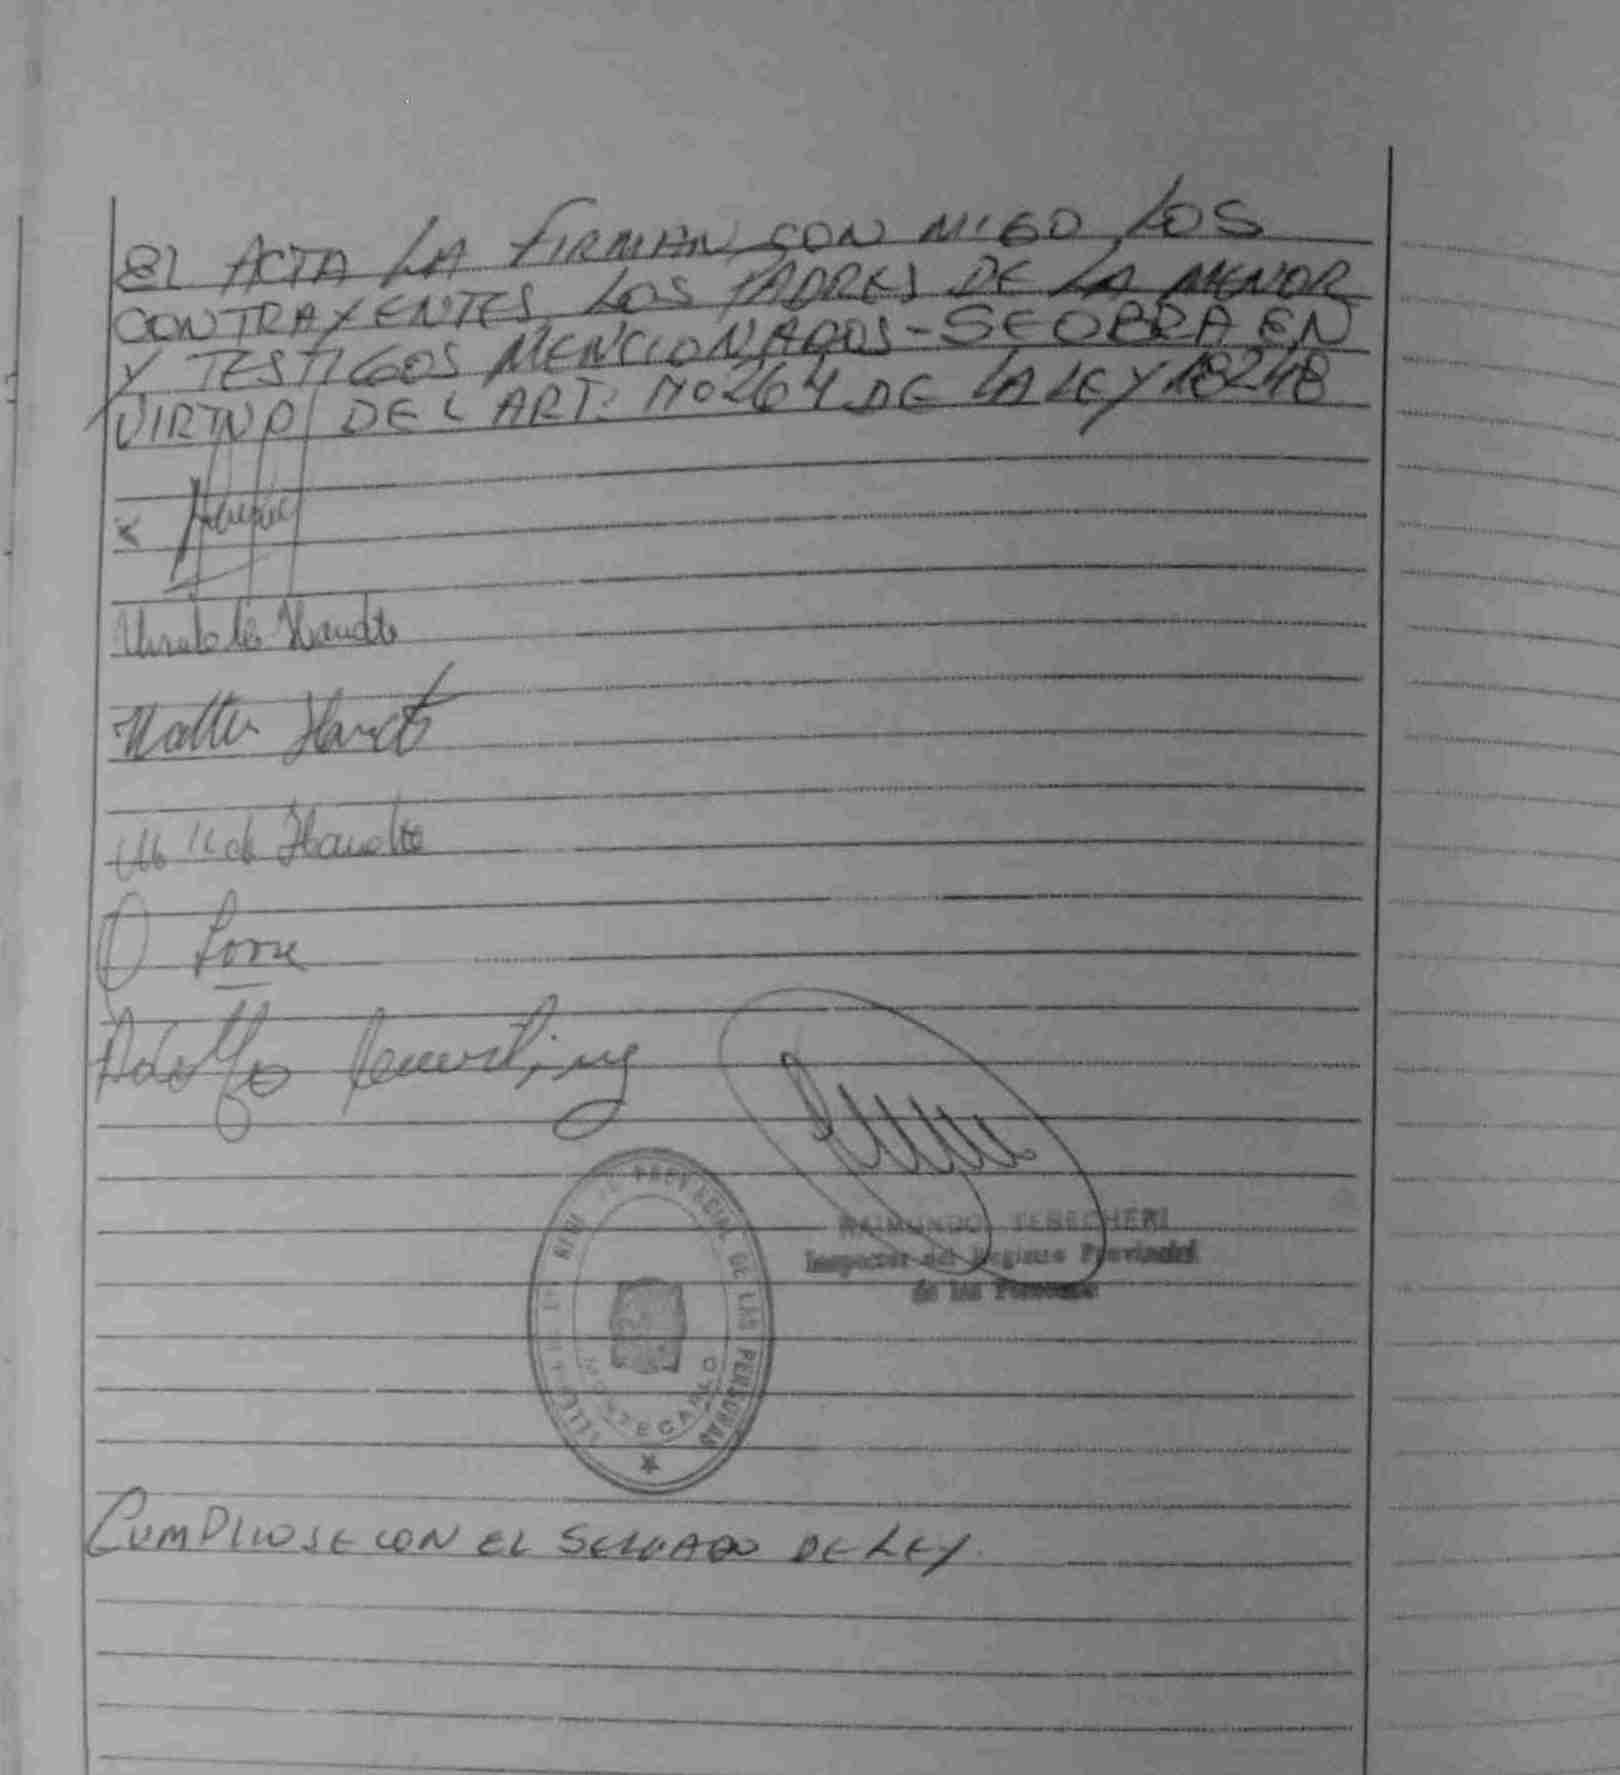 El ACTA LA FIRMAN CON MIGO LOS
CONTRAYENTES, LOS PADRES DE LA MENOR
Y TESTIGOS MENCIONADOS - SE OBRA EN
VIRTUD DEL ART: Nº 264 DE LA LEY 18248
x
Handte
Walter Handt
de Handte
O
Adolfo
PROVINCIAL DE LAS PERSONAS
MONTECARLO
RAIMUNDO TEBECHERI
Inspector del Registro Provincial
de las Personas
CUMPLIOSE CON EL SELLADO DE LEY.